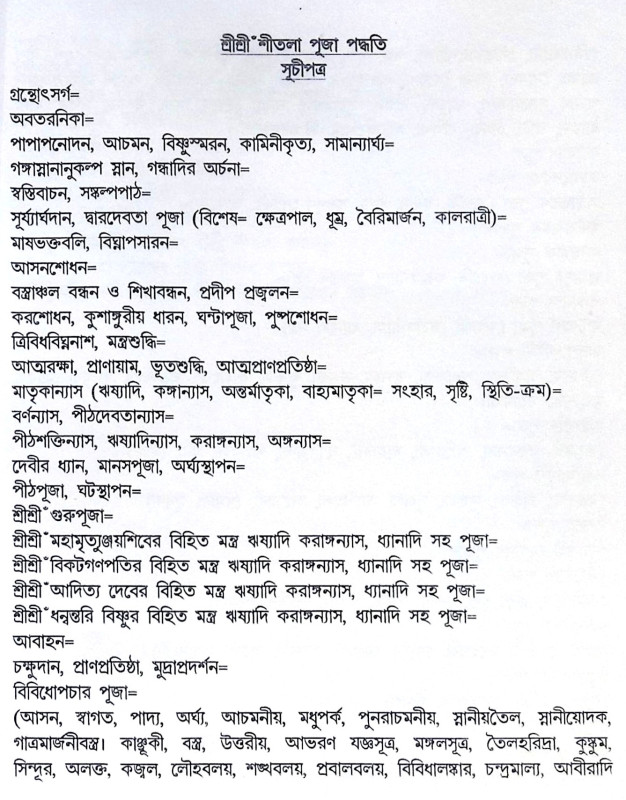 শ্রীশ্রীঁশীতলা পূজা পদ্ধতি
সূচীপত্র
গ্রন্থোৎসর্গ=
অবতরনিকা=
পাপাপনোদন, আচমন, বিষ্ণুস্মরন, কামিনীকৃত্য, সামান্যার্ঘ্য=
গঙ্গাস্নানানুকল্প স্নান, গন্ধাদির অর্চনা=
স্বস্তিবাচন, সঙ্কল্পপাঠ=
সূর্য্যার্ঘদান, দ্বারদেবতা পূজা (বিশেষ= ক্ষেত্রপাল, ধূম্র, বৈরিমার্জন, কালরাত্রী)=
মাষভক্তবলি, বিঘ্নাপসারন=
আসনশোধন=
বস্ত্রাঞ্চল বন্ধন ও শিখাবন্ধন, প্রদীপ প্রজ্বলন=
করশোধন, কুশাঙ্গুরীয় ধারন, ঘন্টাপূজা, পুষ্পশোধন=
ত্রিবিধবিঘ্ননাশ, মন্ত্রশুদ্ধি=
আত্মরক্ষা, প্রাণায়াম, ভূতশুদ্ধি, আত্মপ্রাণপ্রতিষ্ঠা=
মাতৃকান্যাস (ঋষ্যাদি, কঙ্গান্যাস, অন্তর্মাতৃকা, বাহ্যমাতৃকা= সংহার, সৃষ্টি, স্থিতি-ক্রম)=
বর্ণন্যাস, পীঠদেবতান্যাস=
পীঠশক্তিন্যাস, ঋষ্যাদিন্যাস, করাঙ্গন্যাস, অঙ্গন্যাস=
দেবীর ধ্যান, মানসপূজা, অর্ঘ্যস্থাপন=
পীঠপূজা, ঘটস্থাপন=
শ্রীশ্রীঁগুরুপূজা=
শ্রীশ্রীঁমহামৃত্যুঞ্জয়শিবের বিহিত মন্ত্র ঋষ্যাদি করাঙ্গন্যাস, ধ্যানাদি সহ পূজা=
শ্রীশ্রীঁবিকটগণপতির বিহিত মন্ত্র ঋষ্যাদি করাঙ্গন্যাস, ধ্যানাদি সহ পূজা=
শ্রীশ্রীঁআদিত্য দেবের বিহিত মন্ত্র ঋষ্যাদি করাঙ্গন্যাস, ধ্যানাদি সহ পূজা=
শ্রীশ্রীঁধন্বন্তরি বিষ্ণুর বিহিত মন্ত্র ঋষ্যাদি করাঙ্গন্যাস, ধ্যানাদি সহ পূজা=
আবাহন=
চক্ষুদান, প্রাণপ্রতিষ্ঠা, মুদ্রাপ্রদর্শন=
বিবিধোপচার পূজা=
(আসন, স্বাগত, পাদ্য, অর্ঘ্য, আচমনীয়, মধুপর্ক, পুনরাচমনীয়, স্নানীয়তৈল, স্নানীয়োদক,
গাত্রমার্জনীবস্ত্র। কাঞ্ছুকী, বস্ত্র, উত্তরীয়, আভরণ যজ্ঞসূত্র, মঙ্গলসূত্র, তৈলহরিদ্রা, কুঙ্কুম,
সিন্দূর, অলক্ত, কজ্বল, লৌহবলয়, শঙ্খবলয়, প্রবালবলয়, বিবিধালঙ্কার, চন্দ্রমাল্য, আবীরাদি